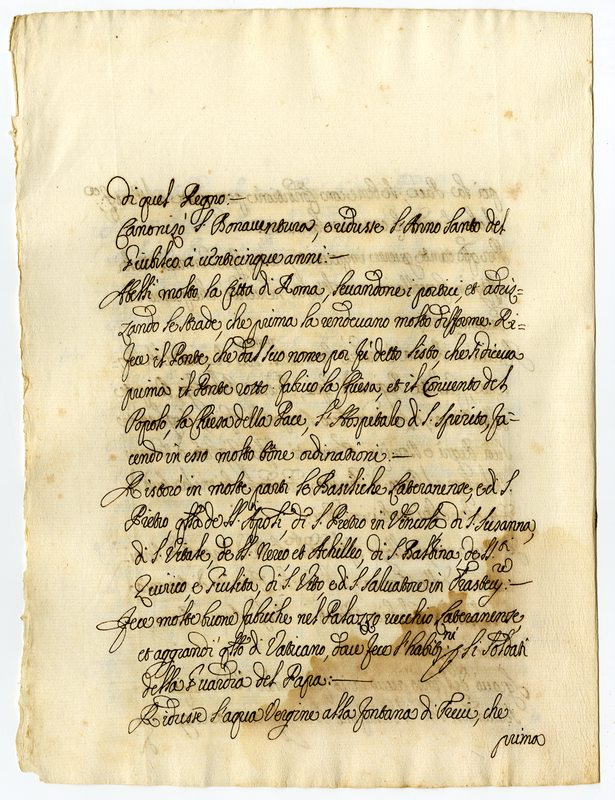 di quel Regno:—
Canonizò S. Bonaventura, e ridusse l'Anno Santo del
Giubileo à venticinque anni:—
Abellì molto la Città di Roma, levandone i portici, et adriz=
zando le strade, che prima la rendevano molto difforme. Ri=
fece il Ponte, che dal suo nome poi fù detto Sisto, che si diceva
prima il Ponte rotto. Fabricò la Chiesa, et il Convento del
Popolo, la Chiesa della Pace, l'Hospitale di S. Spirito, fa=
cendo in esso molto bone ordinationi:—
Ristorò in molte parti le Basiliche Lateranense, e di S.
Pietro, qlla de SS.ti Apostoli, di S. Pietro in Vincola di S. Susanna,
di S. Vitale, de SS. Nereo et Achilleo, di S. Balbina, de SS.ti
Quirico e Giulita, di S. Vito e di S. Salvatore in Trastev.re:—
Fece molte buone fabriche nel Palazzo vecchio Lateranense,
et aggrandì qllo di Vaticano, dove fece l'habit.ni p li Soldati
della Guardia del Papa:—
Ridusse l'aqua Vergine alla fontana di Trevi, che
prima